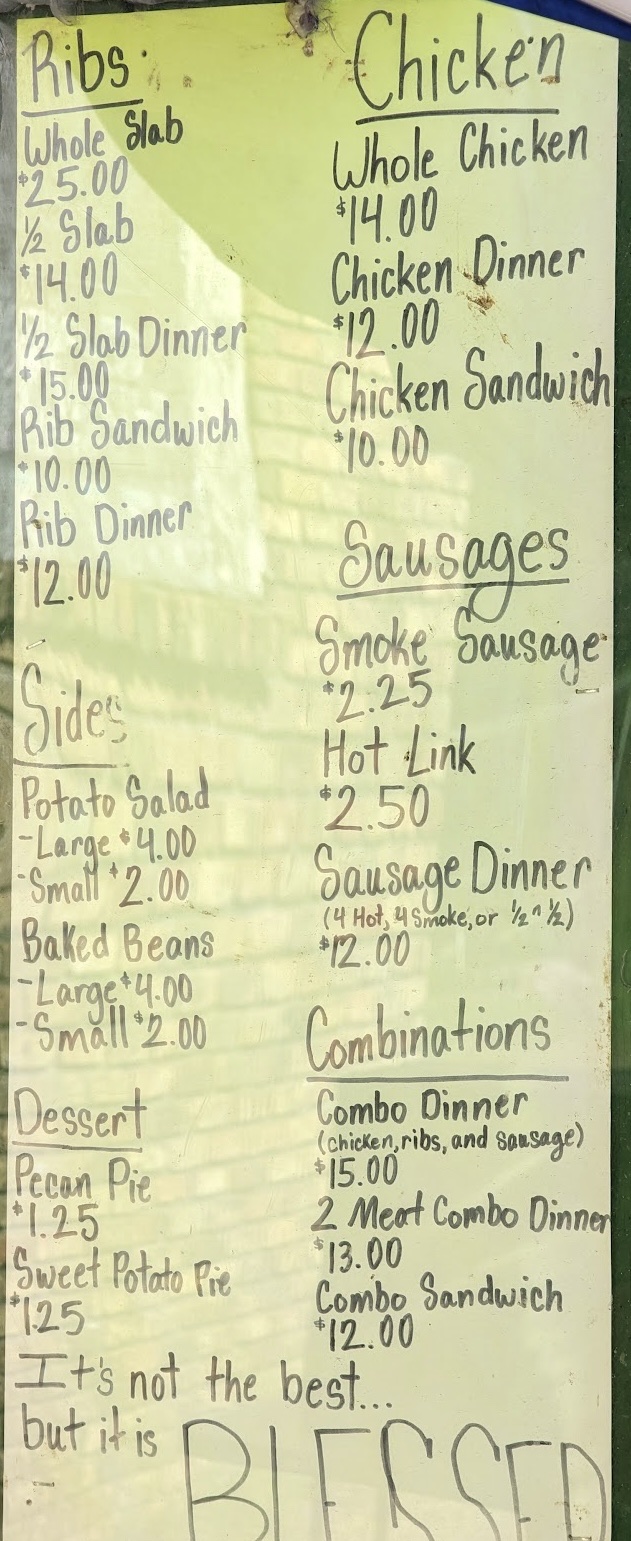 Ribs
Whole Slab
$25.00
½ Slab
$14.00
½ Slab Dinner
$15.00
Rib Sandwich
$10.00
Rib Dinner
$12.00
Sides
Potato Salad
-Large $4.00
-Small $2.00
Baked Beans
-Large $4.00
-Small $2.00
Dessert
Pecan Pie
$1.25
Sweet Potato Pie
$1.25
Chicken
Whole Chicken
$14.00
Chicken Dinner
$12.00
Chicken Sandwich
$10.00
Sausages
Smoke Sausage
$2.25
Hot Link
$2.50
Sausage Dinner
(4 Hot, 4 Smoke, or ½ n ½)
$12.00
Combinations
Combo Dinner
(chicken, ribs, and sausage)
$15.00
2 Meat Combo Dinner
$13.00
Combo Sandwich
$12.00
It's not the best...
but it is BLESSED